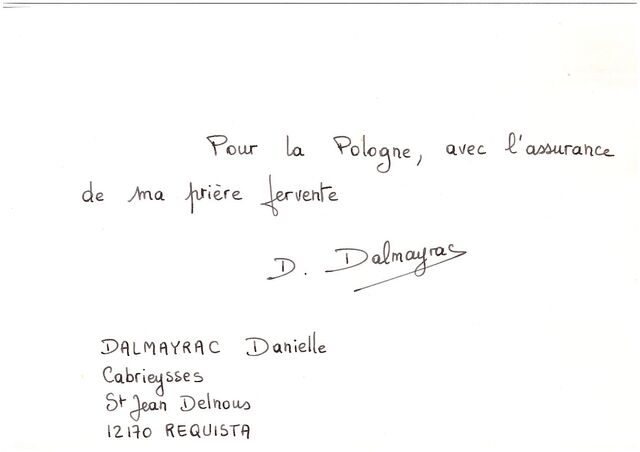 Pour la Pologne, avec l'assurance
de ma prière fervente
D. Dalmayrac
DALMAYRAC Danielle
Cabrieysses
St Jean Delnous
12170 REQUISTA